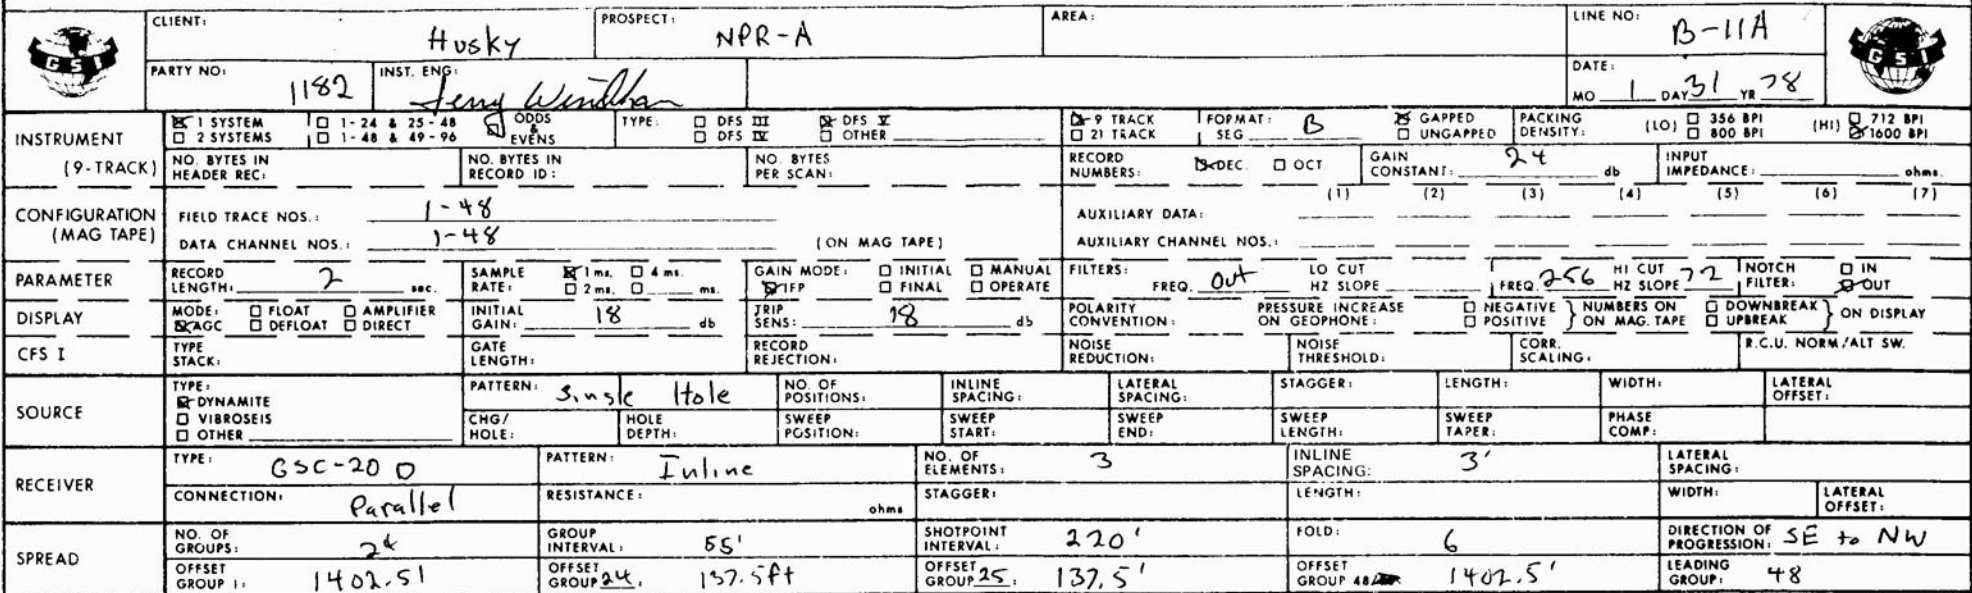 GSI CLIENT: Husky PROSPECT: NPR-A AREA: LINE NO: B-11A GSI
PARTY NO: 1182 INST. ENG: Jerry Windham DATE: MO 1 DAY 31 YR 78
INSTRUMENT (9-TRACK)
☒ 1 SYSTEM ☐ 1-24 & 25-48 ☒ ODDS & EVENS TYPE: ☐ DFS III ☒ DFS V ☒ 9 TRACK FORMAT: SEG B ☒ GAPPED PACKING DENSITY: (LO) ☐ 356 BPI (HI) ☐ 712 BPI
☐ 2 SYSTEMS ☐ 1-48 & 49-96 ☐ DFS IV ☐ OTHER ☐ 21 TRACK ☐ UNGAPPED ☐ 800 BPI ☒ 1600 BPI
NO. BYTES IN HEADER REC: NO. BYTES IN RECORD ID: NO. BYTES PER SCAN: RECORD NUMBERS: ☒ DEC. ☐ OCT GAIN CONSTANT: 24 db INPUT IMPEDANCE: ohms.
CONFIGURATION (MAG TAPE)
FIELD TRACE NOS.: 1-48 AUXILIARY DATA: (1) (2) (3) (4) (5) (6) (7)
DATA CHANNEL NOS.: 1-48 (ON MAG TAPE) AUXILIARY CHANNEL NOS.:
PARAMETER RECORD LENGTH: 2 sec. SAMPLE RATE: ☒ 1 ms. ☐ 4 ms. ☐ 2 ms. ☐ ms. GAIN MODE: ☐ INITIAL ☐ MANUAL ☒ IFP ☐ FINAL ☐ OPERATE FILTERS: FREQ. Out LO CUT HZ SLOPE FREQ. 256 HI CUT HZ SLOPE 72 NOTCH FILTER: ☐ IN ☒ OUT
DISPLAY MODE: ☐ FLOAT ☐ AMPLIFIER ☒ AGC ☐ DEFLOAT ☐ DIRECT INITIAL GAIN: 18 db TRIP SENS: 18 db POLARITY CONVENTION: PRESSURE INCREASE ON GEOPHONE: ☐ NEGATIVE ☐ POSITIVE } NUMBERS ON MAG. TAPE ☐ DOWNBREAK ☐ UPBREAK } ON DISPLAY
CFS I TYPE STACK: GATE LENGTH: RECORD REJECTION: NOISE REDUCTION: NOISE THRESHOLD: CORR. SCALING: R.C.U. NORM/ALT SW.
SOURCE TYPE: ☒ DYNAMITE ☐ VIBROSEIS ☐ OTHER
PATTERN: Single Hole NO. OF POSITIONS: INLINE SPACING: LATERAL SPACING: STAGGER: LENGTH: WIDTH: LATERAL OFFSET:
CHG/HOLE: HOLE DEPTH: SWEEP POSITION: SWEEP START: SWEEP END: SWEEP LENGTH: SWEEP TAPER: PHASE COMP:
RECEIVER
TYPE: GSC-20 D PATTERN: Inline NO. OF ELEMENTS: 3 INLINE SPACING: 3' LATERAL SPACING:
CONNECTION: Parallel RESISTANCE: ohms STAGGER: LENGTH: WIDTH: LATERAL OFFSET:
SPREAD
NO. OF GROUPS: 24 GROUP INTERVAL: 55' SHOTPOINT INTERVAL: 220' FOLD: 6 DIRECTION OF PROGRESSION: SE to NW
OFFSET GROUP 1: 1402.5' OFFSET GROUP 24: 137.5ft OFFSET GROUP 25: 137.5' OFFSET GROUP 48 1402.5' LEADING GROUP: 48